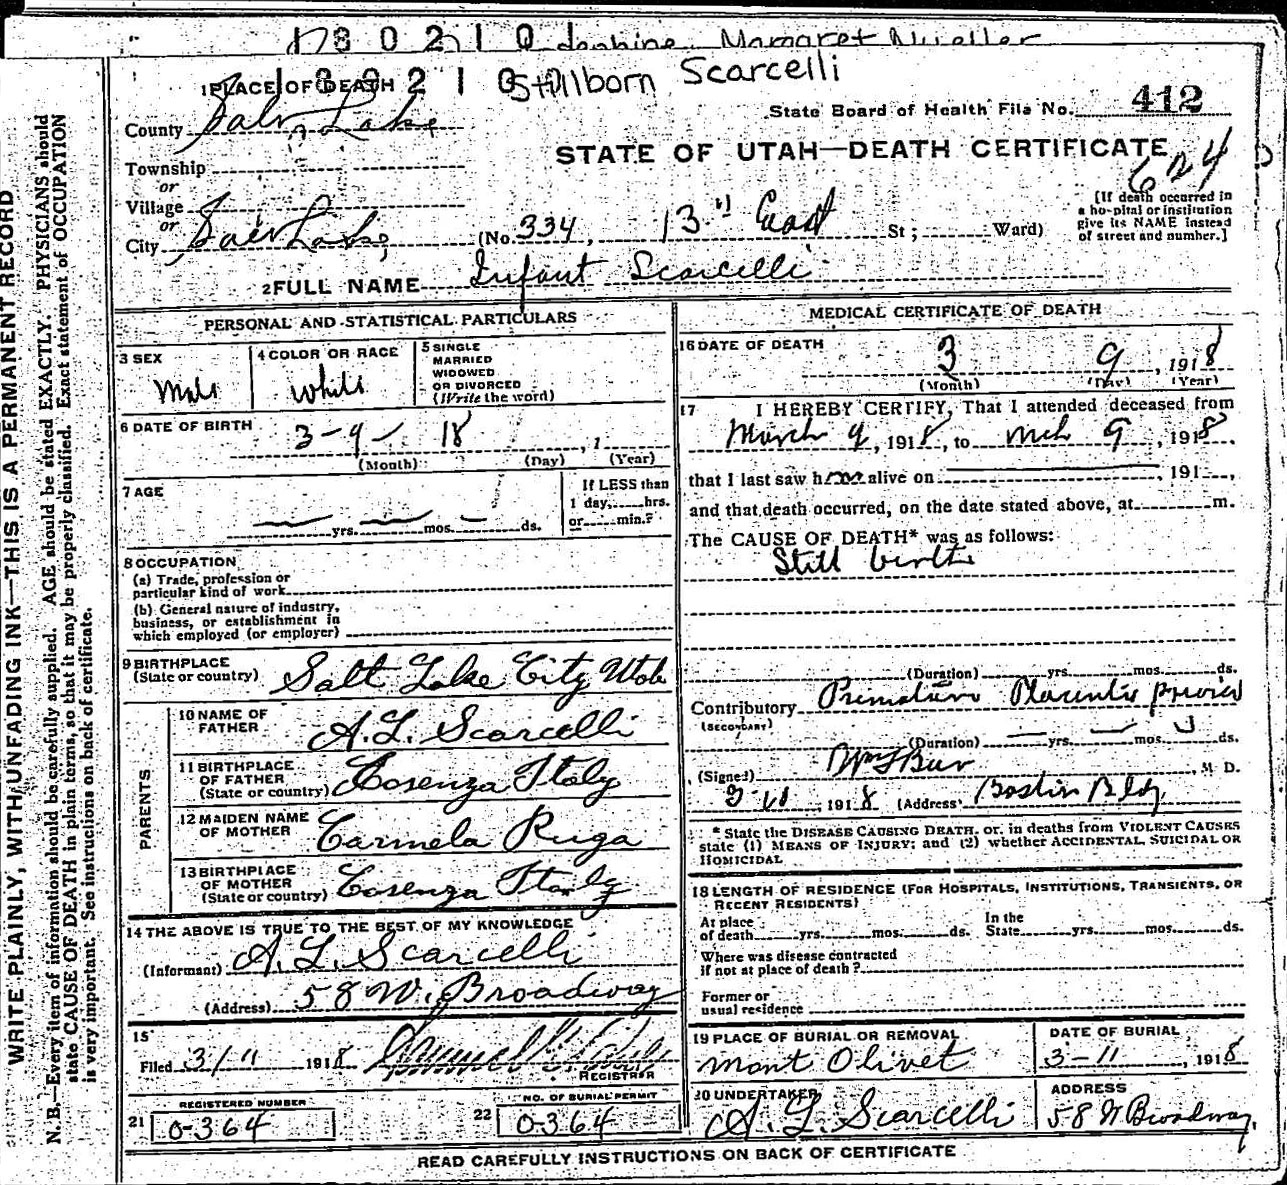 Margaret Mueller
Stillborn Scarcelli
1 PLACE OF DEATH
State Board of Health File No. 412
County Salt Lake
STATE OF UTAH—DEATH CERTIFICATE
624
Township
or
Village
or
City Salt Lake (No. 334, 13th East St; Ward)
[If death occurred in
a hospital or institution
give its NAME instead
of street and number.]
2 FULL NAME Infant Scarcelli
PERSONAL AND STATISTICAL PARTICULARS
3 SEX
Male
4 COLOR OR RACE
White
5 SINGLE
MARRIED
WIDOWED
OR DIVORCED
(Write the word)
6 DATE OF BIRTH 3-9-18, 1
(Month) (Day) (Year)
7 AGE
yrs. mos. ds.
If LESS than
1 day, hrs.
or min.?
8 OCCUPATION
(a) Trade, profession or
particular kind of work
(b) General nature of industry,
business, or establishment in
which employed (or employer)
9 BIRTHPLACE
(State or country) Salt Lake City Utah
PARENTS
10 NAME OF
FATHER A. L. Scarcelli
11 BIRTHPLACE
OF FATHER
(State or country) Cosenza Italy
12 MAIDEN NAME
OF MOTHER Carmela Ruga
13 BIRTHPLACE
OF MOTHER
(State or country) Cosenza Italy
14 THE ABOVE IS TRUE TO THE BEST OF MY KNOWLEDGE
(Informant) A. L. Scarcelli
(Address) 58 W. Broadway
15
Filed 3/11 1918
REGISTRAR
REGISTERED NUMBER
21 0-364
NO. OF BURIAL PERMIT
22 0-364
MEDICAL CERTIFICATE OF DEATH
16 DATE OF DEATH 3 9, 1918
(Month) (Day) (Year)
17 I HEREBY CERTIFY, That I attended deceased from
March 9, 1918, to Mch 9, 1918,
that I last saw him alive on , 191 ,
and that death occurred, on the date stated above, at m.
The CAUSE OF DEATH* was as follows:
Still birth
(Duration) yrs. mos. ds.
Contributory Premature Placenta previa
(SECONDARY)
(Duration) yrs. mos. ds.
(Signed) , M. D.
1918 (Address) Boston Bldg
* State the DISEASE CAUSING DEATH, or, in deaths from VIOLENT CAUSES
state (1) MEANS OF INJURY; and (2) whether ACCIDENTAL, SUICIDAL OR
HOMICIDAL
18 LENGTH OF RESIDENCE (FOR HOSPITALS, INSTITUTIONS, TRANSIENTS, OR
RECENT RESIDENTS)
At place
of death yrs. mos. ds.
In the
State yrs. mos. ds.
Where was disease contracted
if not at place of death?
Former or
usual residence
19 PLACE OF BURIAL OR REMOVAL
Mont Olivet
DATE OF BURIAL
3-11, 1918
20 UNDERTAKER
A. L. Scarcelli
ADDRESS
58 W Broadway
READ CAREFULLY INSTRUCTIONS ON BACK OF CERTIFICATE
WRITE PLAINLY, WITH UNFADING INK—THIS IS A PERMANENT RECORD
N. B.—Every item of information should be carefully supplied. AGE should be stated EXACTLY. PHYSICIANS should
state CAUSE OF DEATH in plain terms, so that it may be properly classified. Exact statement of OCCUPATION
is very important. See instructions on back of certificate.